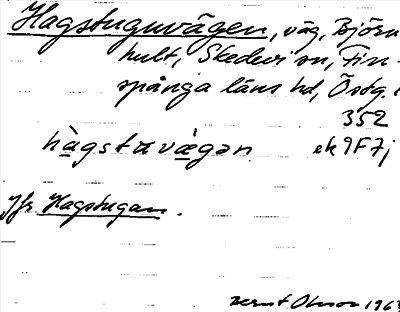 Hagstuguvägen, väg, Björn
hult, Skedevi sn, Fin-
spånga läns hd, Östg.
352
hàgstʉvä̀gən ek 9F7j
Jfr Hagstugan.
Bernt Olsson 1963